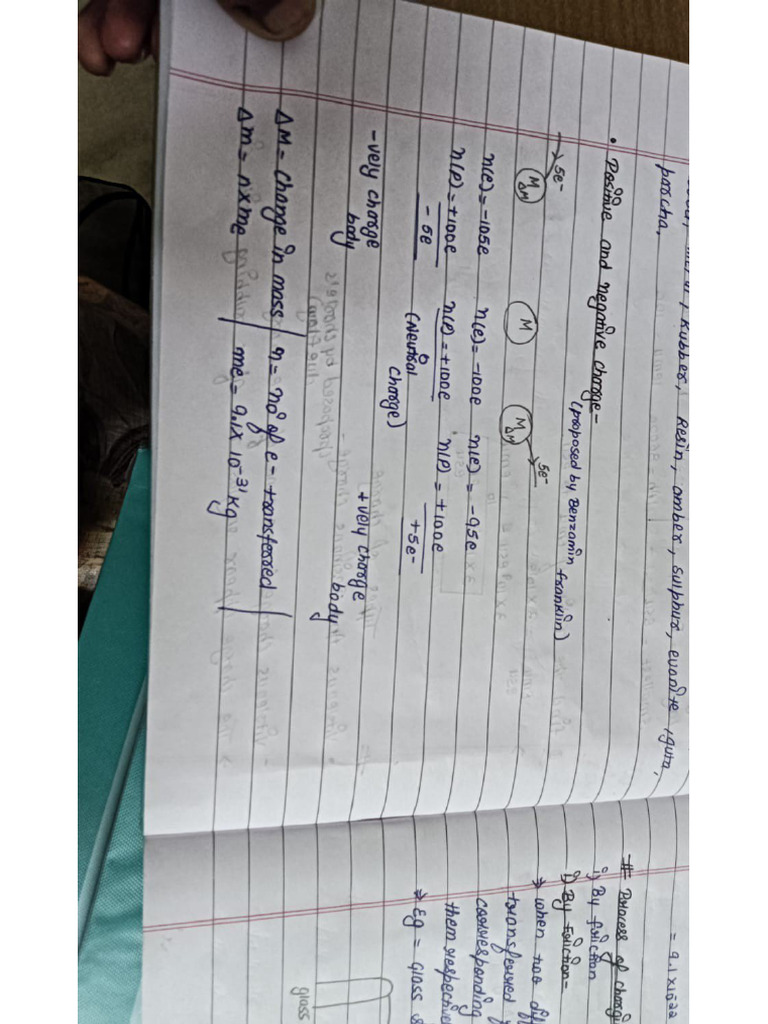 Rubber, Resin, amber, sulphur, evanite, guta,
parcha,
• Positive and negative charge-
(proposed by Benzamin franklin)
5e-
M
ΔM
M
M
ΔM
5e-
n(e) = -105e
n(e) = -100e
n(e) = -95e
n(P) = +100e
n(P) = +100e
n(P) = +100e
- 5e
(Neutral
charge)
+5e-
-vely charge
body
+vely charge
body
ΔM = change in mass
n = no of e- transferred
Δm = n×me
me = 9.1×10-31 kg
= 9.1×10-22
# Process of
i) By friction
i) By friction-
→ when two
transferred
corresponding
them respective
→ Eg = glass
glass